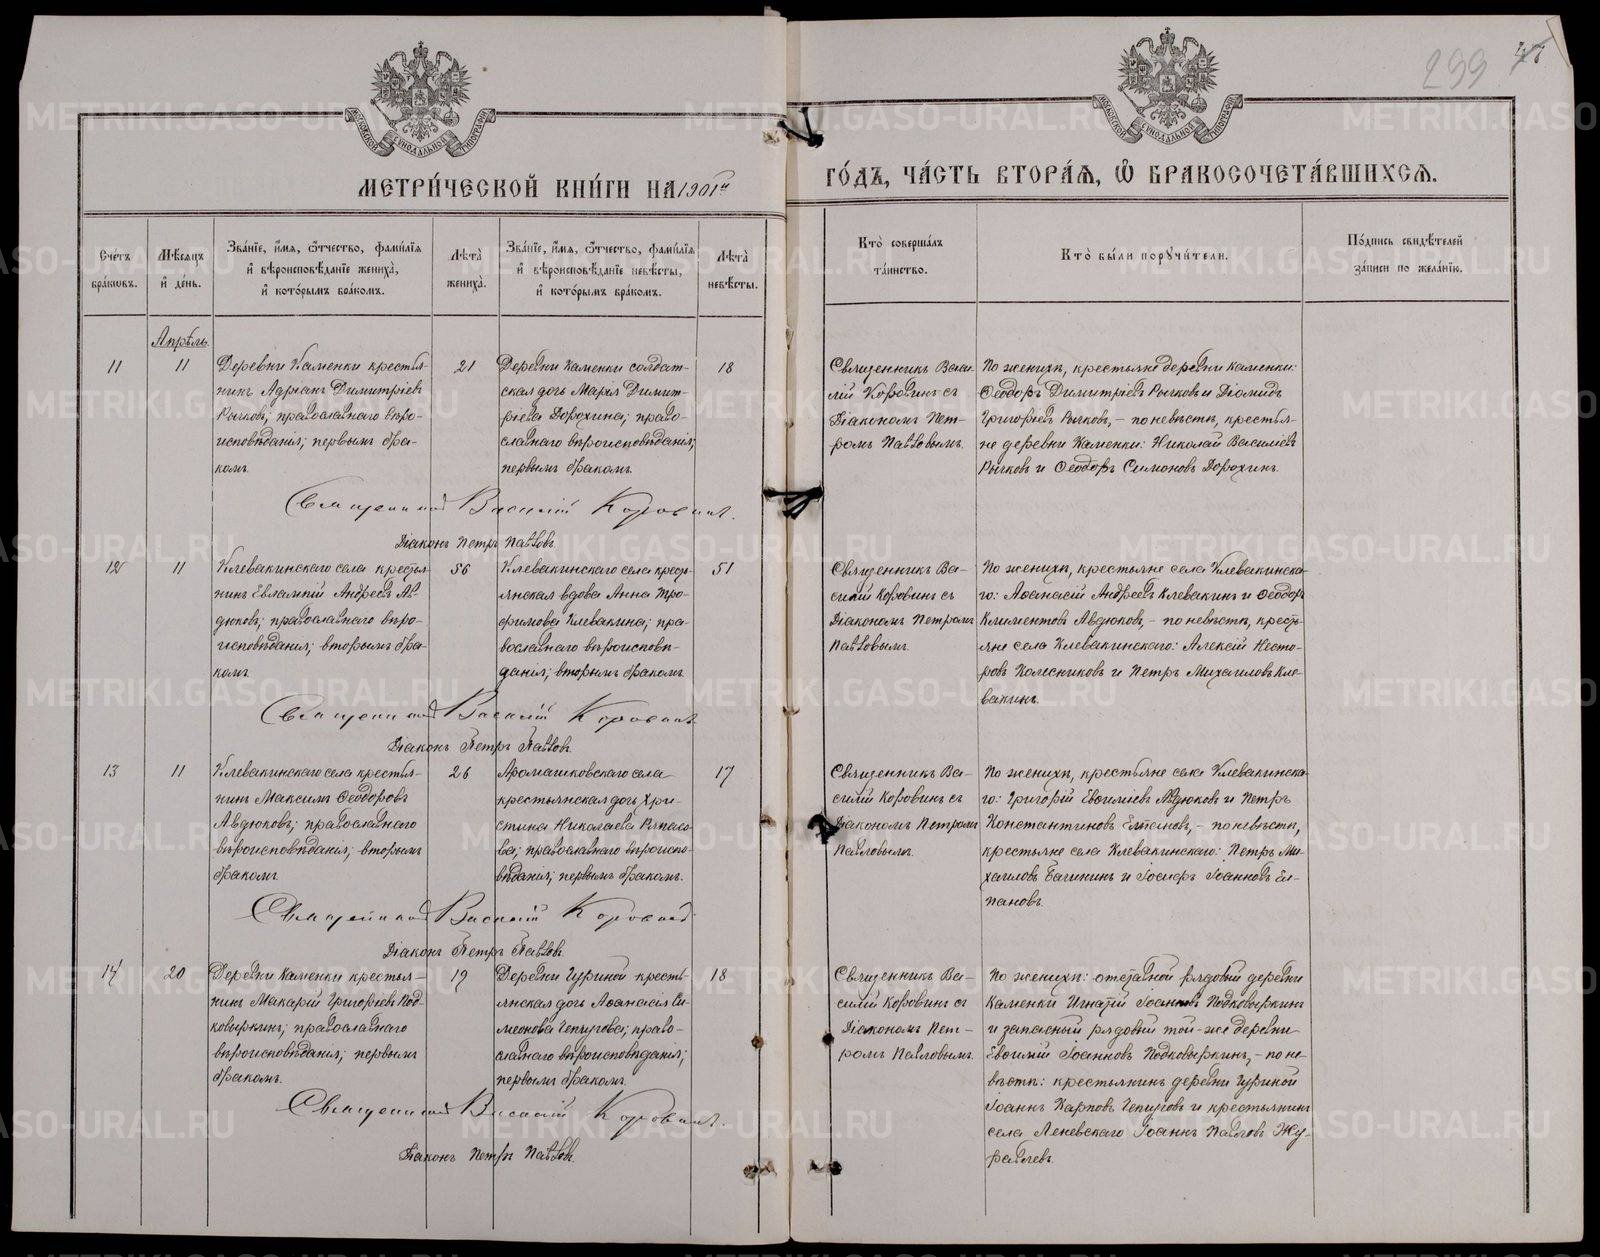 299 47
МОСКОВСКОЙ СѴНОДАЛЬНОЙ ТИПОГРАФІИ
МОСКОВСКОЙ СѴНОДАЛЬНОЙ ТИПОГРАФІИ
МЕТРИ́ЧЕСКОЙ КНИ́ГИ НА 1901й
ГО́ДЪ, ЧА́СТЬ ВТОРА́Я, Ѽ БРАКОСОЧЕТА́ВШИХСЯ.
Сче́тъ
бра́ковъ.
Мѣ́сяцъ
и҆ де́нь.
Зва́нїе, и҆́мя, ѻ҆́тчество, фами́лїя
и҆ вѣроисповѣ́данїе жениха̀,
и҆ кото́рымъ бра́комъ.
Лѣ̑та̀
жениха̀.
Зва́нїе, и҆́мя, ѻ҆́тчество, фами́лїя
и҆ вѣроисповѣ́данїе невѣ́сты,
и҆ кото́рымъ бра́комъ.
Лѣ̑та̀
невѣ́сты.
Кто̀ соверша́лъ
та́инство.
Кто̀ бы́ли порꙋчи́тели.
По́дпись свидѣ́телей
за́писи по жела́нїю.
Апрѣль.
11
11
Деревни Каменки крестья-
нинъ Адріанъ Димитріевъ
Рычковъ; православнаго вѣро-
исповѣданія; первымъ бра-
комъ.
21
Деревни Каменки солдат-
ская дочь Марія Димит-
ріева Дорохина; право-
славнаго вѣроисповѣданія;
первымъ бракомъ.
18
Священникъ Васи-
лій Коровинъ съ
Діакономъ Пет-
ромъ Павловымъ.
По женихѣ, крестьяне деревни Каменки:
Ѳеодоръ Димитріевъ Рычковъ и Діомидъ
Григоріевъ Рычковъ, – по невѣстѣ, крестья-
не деревни Каменки: Николай Василіевъ
Рычковъ и Ѳеодоръ Симоновъ Дорохинъ.
Священникъ Василій Коровинъ.
Діаконъ Петръ Павловъ.
12
11
Клевакинскаго села крестья-
нинъ Евлампій Андреевъ Ав-
дюковъ; православнаго вѣро-
исповѣданія; вторымъ бра-
комъ.
56
Клевакинскаго села кресть-
янская вдова Анна Тро-
фимова Клевакина; пра-
вославнаго вѣроисповѣ-
данія; вторымъ бракомъ.
51
Священникъ Ва-
силій Коровинъ съ
Діакономъ Петромъ
Павловымъ.
По женихѣ, крестьяне села Клевакинска-
го: Аѳанасій Андреевъ Клевакинъ и Ѳеодоръ
Климентовъ Авдюковъ, – по невѣстѣ, кресть-
яне села Клевакинскаго: Алексій Несто-
ровъ Колесниковъ и Петръ Михаиловъ Кле-
вакинъ.
Священникъ Василій Коровинъ.
Діаконъ Петръ Павловъ.
13
11
Клевакинскаго села крестья-
нинъ Максимъ Ѳеодоровъ
Авдюковъ; православнаго
вѣроисповѣданія; вторымъ
бракомъ.
26
Аромашковскаго села
крестьянская дочь Хри-
стина Николаева
православнаго вѣроиспо-
вѣданія; первымъ бракомъ.
17
Священникъ Ва-
силій Коровинъ съ
Діакономъ Петромъ
Павловымъ.
По женихѣ, крестьяне села Клевакинска-
го: Григорій Евѳиміевъ Авдюковъ и Петръ
Константиновъ Елпановъ, – по невѣстѣ,
крестьяне села Клевакинскаго: Петръ Ми-
хаиловъ Бачининъ и Іосифъ Іоанновъ Ел-
пановъ.
Священникъ Василій Коровинъ
Діаконъ Петръ Павловъ.
14
20
Деревни Каменки крестья-
нинъ Макарій Григорьевъ Под-
ковыркинъ; православнаго
вѣроисповѣданія; первымъ
бракомъ.
19
Деревни Гуриной кресть-
янская дочь Аѳанасія Си-
меонова Чепчугова; право-
славнаго вѣроисповѣданія;
первымъ бракомъ.
18
Священникъ Ва-
силій Коровинъ съ
Діакономъ Пет-
ромъ Павловымъ.
По женихѣ: отставной рядовый деревни
Каменки Игнатій Іоанновъ Подковыркинъ
и запасный рядовый той-же деревни
Евѳимій Іоанновъ Подковыркинъ, – по не-
вѣстѣ: крестьянинъ деревни Гуриной
Іоаннъ Карповъ Чепчуговъ и крестьянинъ
села Леневскаго Іоаннъ Павловъ Жу-
равлевъ.
Священникъ Василій Коровинъ.
Діаконъ Петръ Павловъ.
METRIKI.GASO-URAL.RU